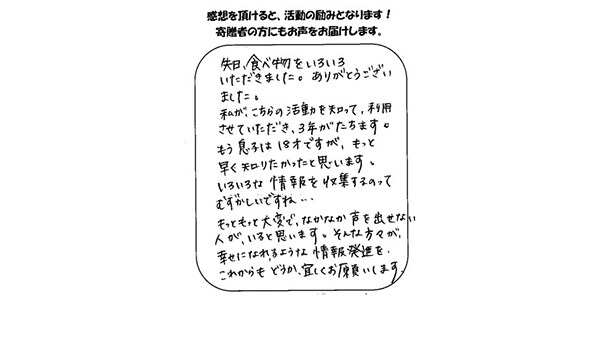 感想を頂けると、活動の励みとなります!
寄贈者の方にもお声をお届けします。
先日、食べ物をいろいろ
いただきました。ありがとうござい
ました。
私が、こちらの活動を知って、利用
させていただき、3年がたちます。
もう息子は18才ですが、もっと
早く知りたかったと思います。
いろいろな情報を収集するのって
むずかしいですね…
もっともっと大変で、なかなか声を出せない
人が、いると思います。そんな方々が、
幸せになれるような情報発進を、
これからもどうか、宜しくお願いします。